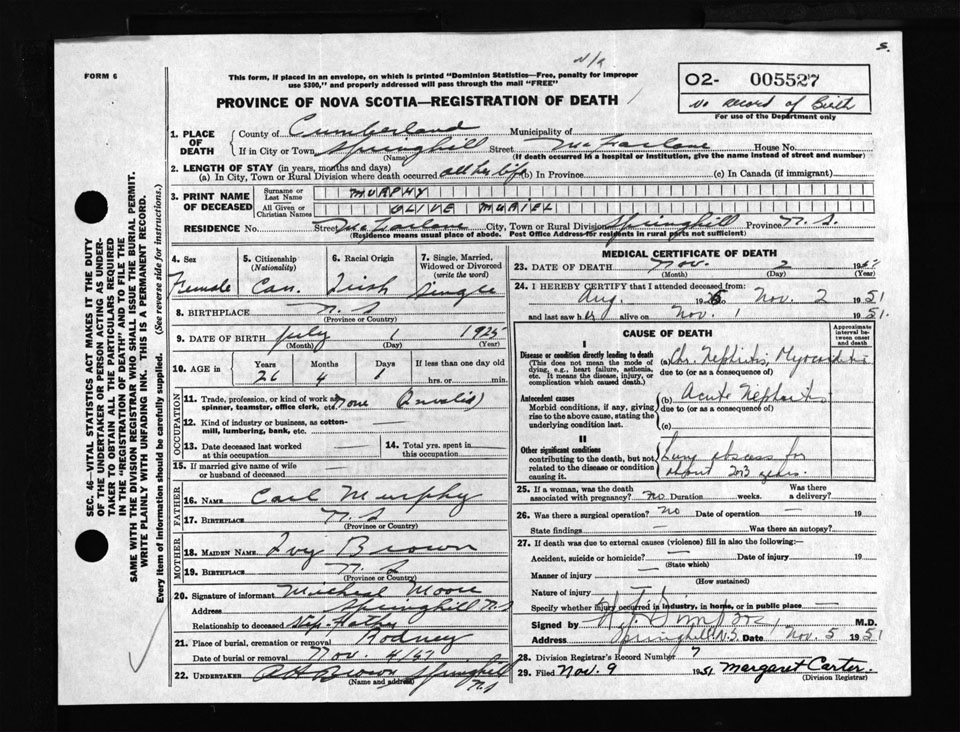 S.
N/A
FORM 6
This form, if placed in an envelope, on which is printed "Dominion Statistics—Free, penalty for improper
use $300," and properly addressed will pass through the mail "FREE"
O2- 005527
No record of Birth
For use of the Department only
PROVINCE OF NOVA SCOTIA—REGISTRATION OF DEATH
1. PLACE OF DEATH
County of Cumberland Municipality of
If in City or Town Springhill Street McFarlane House No.
(Name) (If death occurred in a hospital or institution, give the name instead of street and number)
2. LENGTH OF STAY (in years, months and days)
(a) In City, Town or Rural Division where death occurred all her life (b) In Province (c) In Canada (if immigrant)
3. PRINT NAME OF DECEASED
Surname or Last Name MURPHY
All Given or Christian Names OLIVE MURIEL
RESIDENCE No. Street McFarlane City, Town or Rural Division Springhill Province N.S.
(Residence means usual place of abode. Post Office Address for residents in rural parts not sufficient)
4. Sex Female
5. Citizenship (Nationality) Can.
6. Racial Origin Irish
7. Single, Married, Widowed or Divorced (write the word) Single
8. BIRTHPLACE N.S
(Province or Country)
9. DATE OF BIRTH July 1 1925
(Month) (Day) (Year)
10. AGE in Years Months Days If less than one day old
26 4 1 hrs. or min.
OCCUPATION
11. Trade, profession, or kind of work as spinner, teamster, office clerk, etc. None (Invalid)
12. Kind of industry or business, as cotton-mill, lumbering, bank, etc. —
13. Date deceased last worked at this occupation —
14. Total yrs. spent in this occupation
15. If married give name of wife or husband of deceased —
FATHER
16. NAME Carl Murphy
17. BIRTHPLACE N.S
(Province or Country)
MOTHER
18. MAIDEN NAME Ivy Brown
19. BIRTHPLACE N.S
(Province or Country)
20. Signature of informant Micheal Moore
Address Springhill N.S
Relationship to deceased Step-Father
21. Place of burial, cremation or removal Rodney
Date of burial or removal Nov. 4/51
22. UNDERTAKER Brown Springhill N.S
(Name and address)
MEDICAL CERTIFICATE OF DEATH
23. DATE OF DEATH Nov. 2 1951
(Month) (Day) (Year)
24. I HEREBY CERTIFY that I attended deceased from:
Aug. 19 to Nov. 2 1951
and last saw her alive on Nov. 1 1951.
CAUSE OF DEATH
Approximate interval between onset and death
I
Disease or condition directly leading to death
(This does not mean the mode of dying, e.g., heart failure, asthenia, etc. It means the disease, injury, or complication which caused death.)
(a) Chr. Nephritis, Myocarditis
due to (or as a consequence of)
Antecedent causes
Morbid conditions, if any, giving rise to the above cause, stating the underlying condition last.
(b) Acute Nephritis
due to (or as a consequence of)
(c)
II
Other significant conditions
contributing to the death, but not related to the disease or condition causing it.
Lung abscess for
about 2 or 3 years.
25. If a woman, was the death associated with pregnancy? no Duration weeks. Was there a delivery?
26. Was there a surgical operation? no Date of operation — 19
State findings — Was there an autopsy?
27. If death was due to external causes (violence) fill in also the following:—
Accident, suicide or homicide? — Date of injury 19
(State which)
Manner of injury —
(How sustained)
Nature of injury —
Specify whether injury occurred in industry, in home, or in public place —
Signed by M.D.
Address Springhill N.S. Date Nov. 5 1951
28. Division Registrar's Record Number 7
29. Filed Nov. 9 1951 Margaret Carter.
(Division Registrar)
SEC. 46—VITAL STATISTICS ACT MAKES IT THE DUTY
OF THE UNDERTAKER OR PERSON ACTING AS UNDER-
TAKER TO OBTAIN ALL THE PARTICULARS REQUIRED
IN THE "REGISTRATION OF DEATH" AND TO FILE THE
SAME WITH THE DIVISION REGISTRAR WHO SHALL ISSUE THE BURIAL PERMIT.
WRITE PLAINLY WITH UNFADING INK. THIS IS A PERMANENT RECORD.
Every item of information should be carefully supplied. (See reverse side for instructions.)